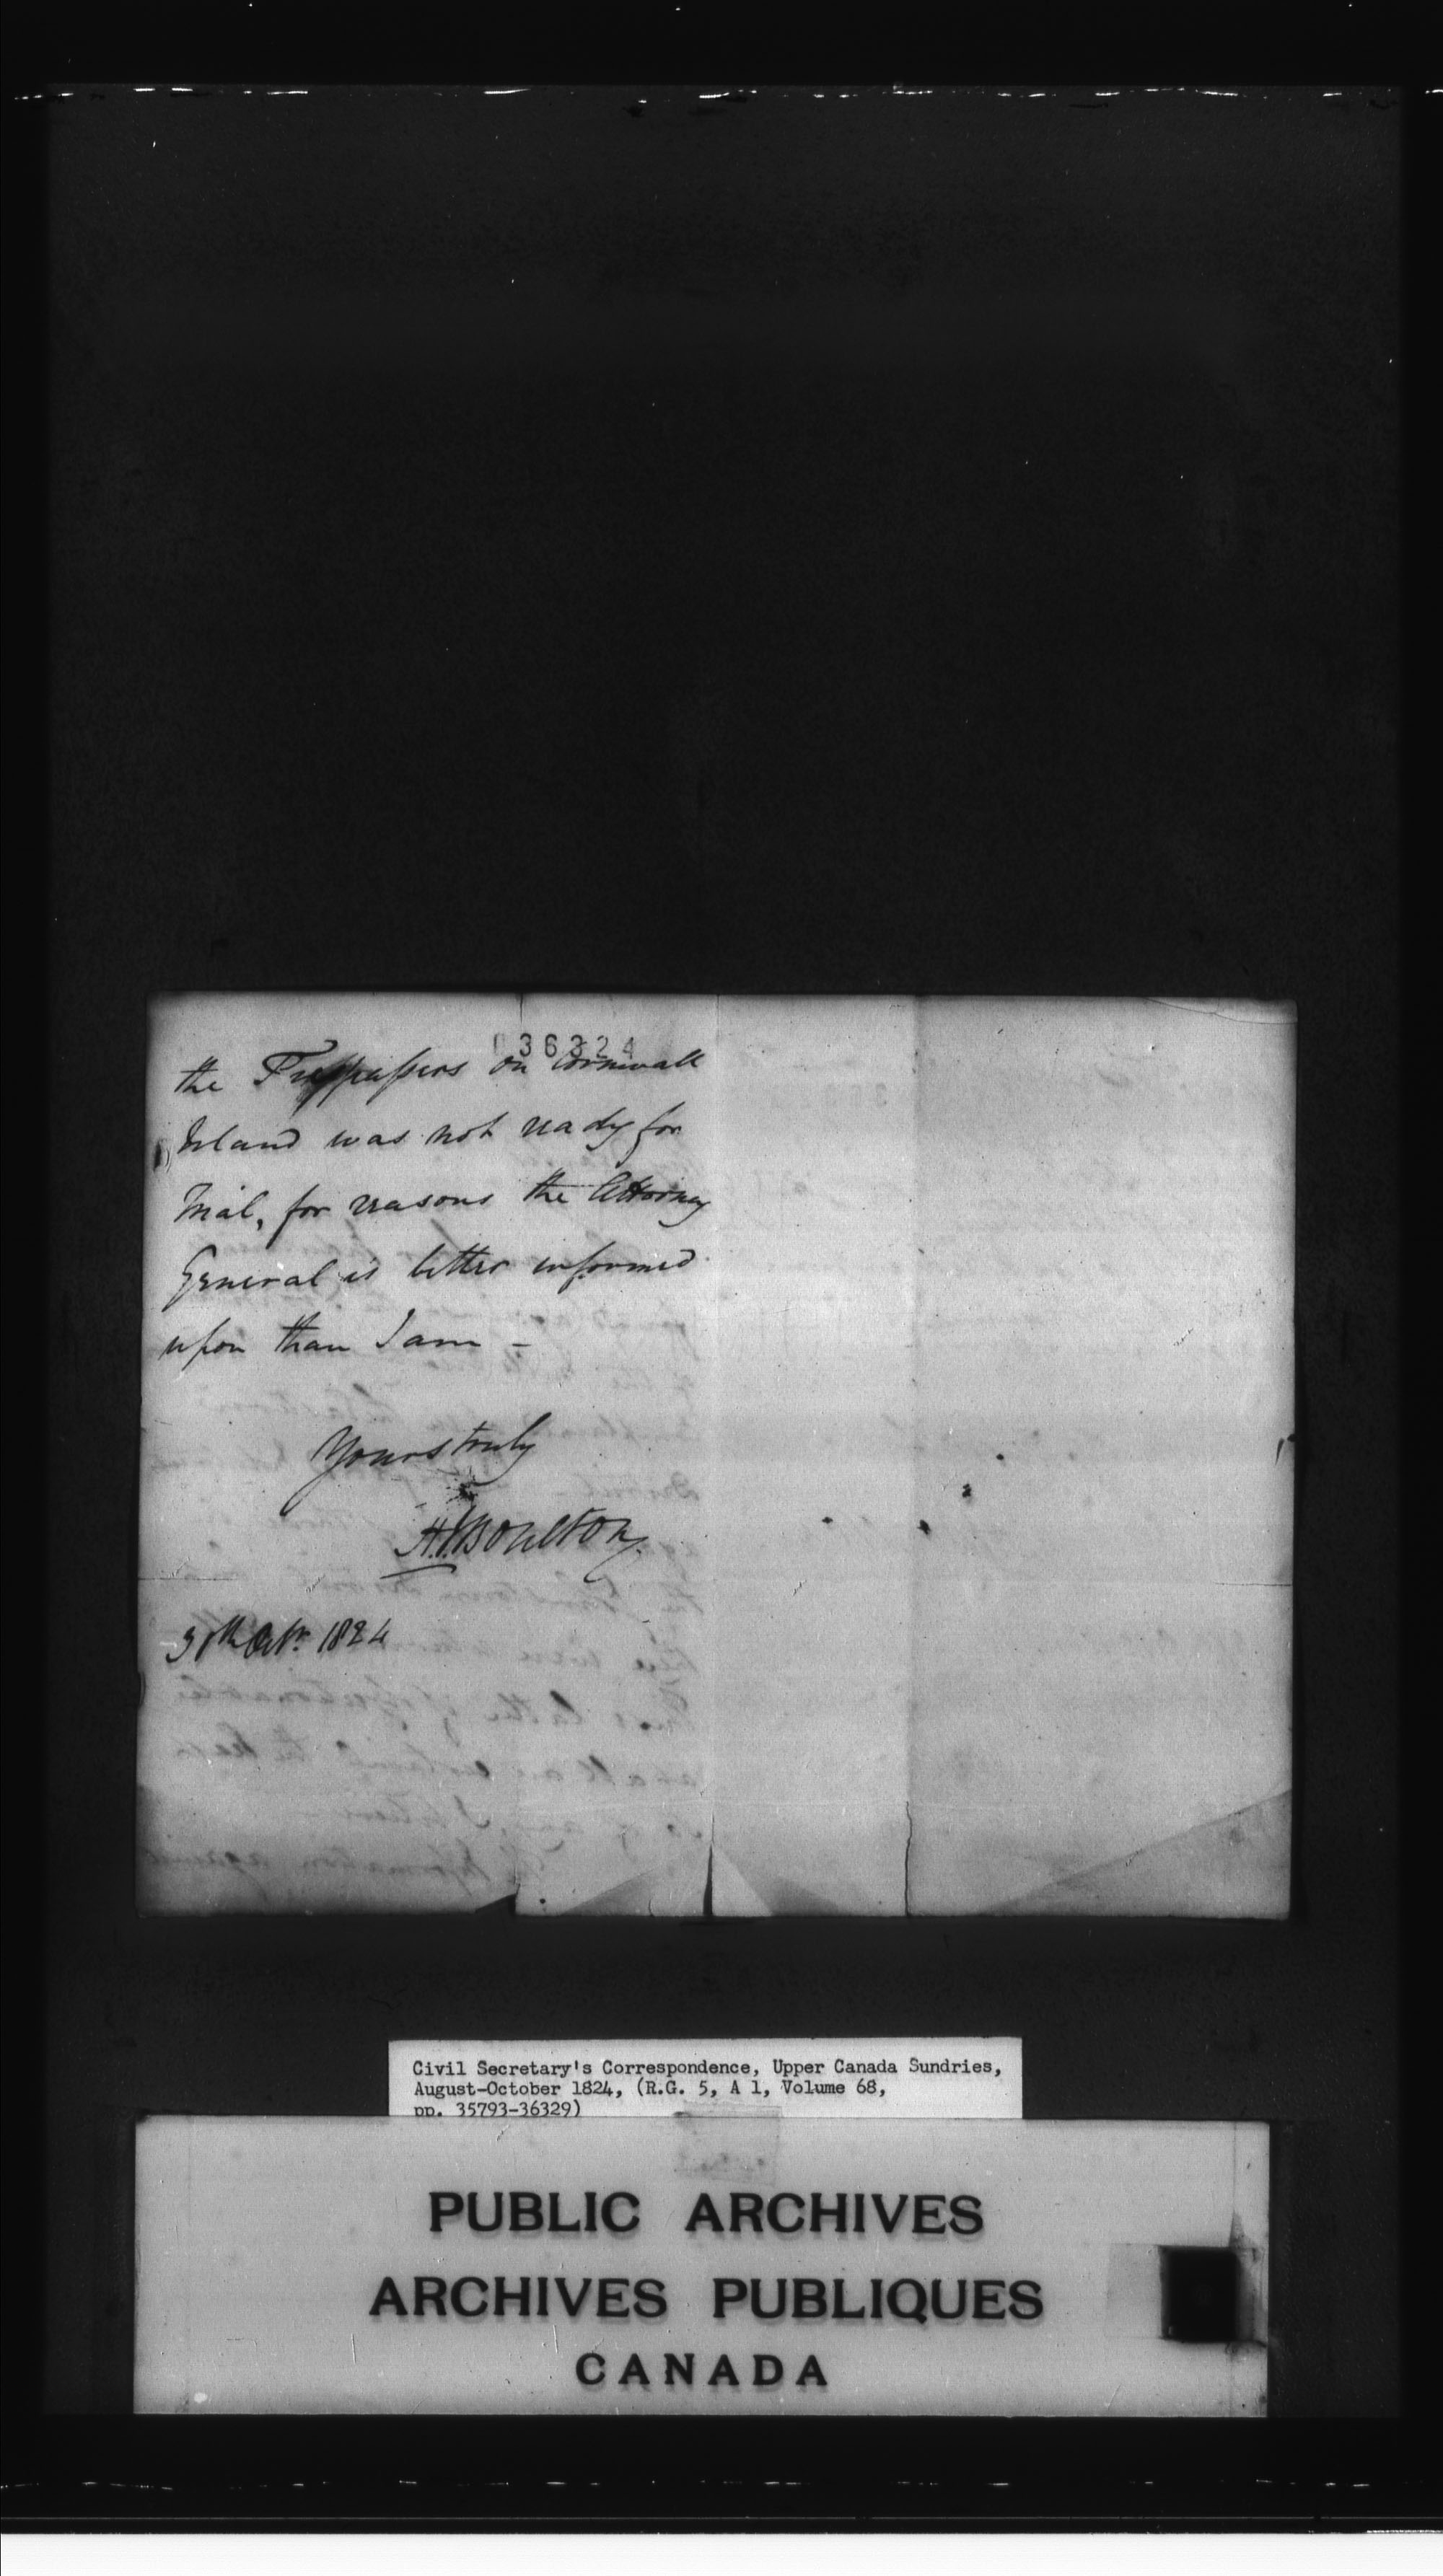 036324
the Trespassers on Cornwall
Island was not ready for
Trial, for reasons the Attorney
General is better informed
upon than I am -
Yours truly
H.J. Boulton
Octr. 1824
Civil Secretary's Correspondence, Upper Canada Sundries,
August-October 1824, (R.G. 5, A 1, Volume 68,
pp. 35793-36329)
PUBLIC ARCHIVES
ARCHIVES PUBLIQUES
CANADA